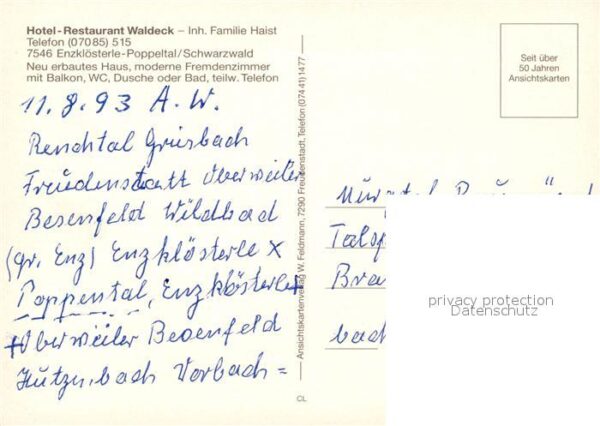 Hotel-Restaurant Waldeck – Inh. Familie Haist
Telefon (07085) 515
7546 Enzklösterle-Poppeltal/Schwarzwald
Neu erbautes Haus, moderne Fremdenzimmer
mit Balkon, WC, Dusche oder Bad, teilw. Telefon
11.8.93 A.W.
Renchtal Griesbach
Freudenstatt Oberweiler
Besenfeld Wildbad
(gr. Enz) Enzklösterle X
Poppental, Enzklösterle+
+Oberweiler Besenfeld
Hutzenbach Vorbach =
Ansichtskartenverlag W. Feldmann, 7290 Freudenstadt, Telefon (07441) 1477
CL
Seit über
50 Jahren
Ansichtskarten
Talsp
Bra
bach
privacy protection
Datenschutz